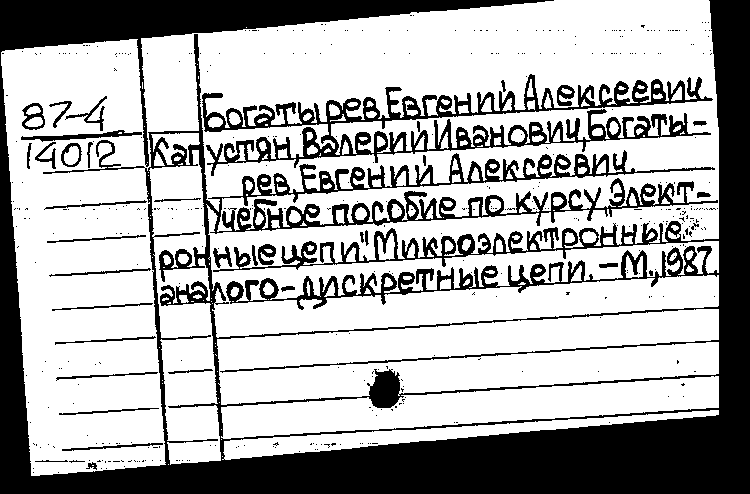 87-4
14012
Богатырев, Евгений Алексеевич.
Капустян, Валерий Иванович, Богаты-
рев, Евгений Алексеевич.
Учебное пособие по курсу „Элект-
ронные цепи". Микроэлектронные
аналого-дискретные цепи. - М., 1987.